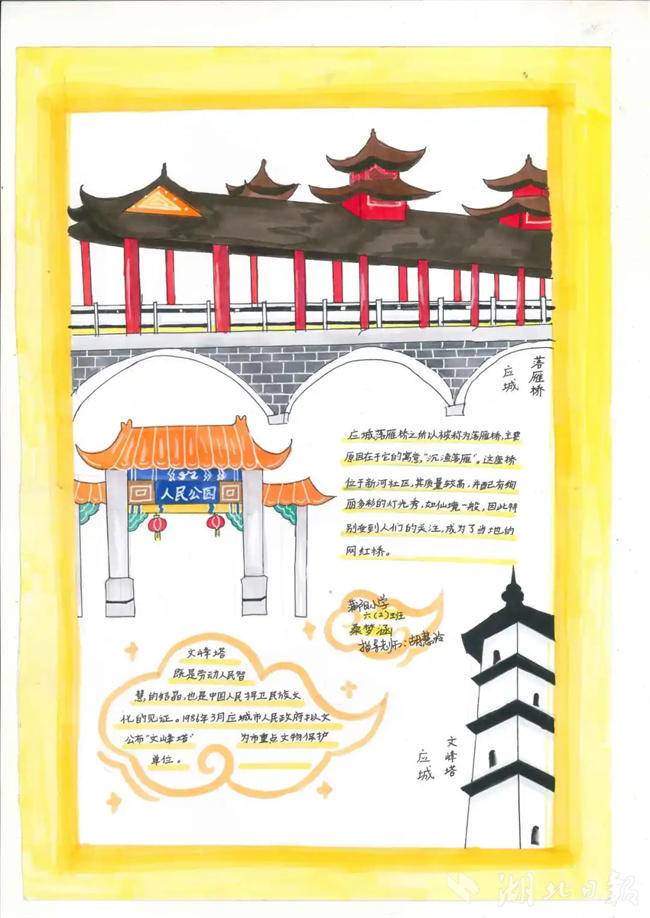 落雁桥
应城
应城落雁桥之所以被称为落雁桥,主要
原因在于它的寓意,"沉渔落雁"。这座桥
位于新河社区,其质量较高,并配有绚
丽多彩的灯光秀,如仙境一般,因此特
别受到人们的关注,成为了当地的
网红桥。
人民公园
小学
六(2)班
桑梦涵
指导老师:胡慧
文峰塔
既是劳动人民智
慧的结晶,也是中国人民捍卫民族文
化的见证。1986年3月应城市人民政府拟文
公布"文峰塔" 为市重点文物保护
单位。
文峰塔
应城
湖北日报